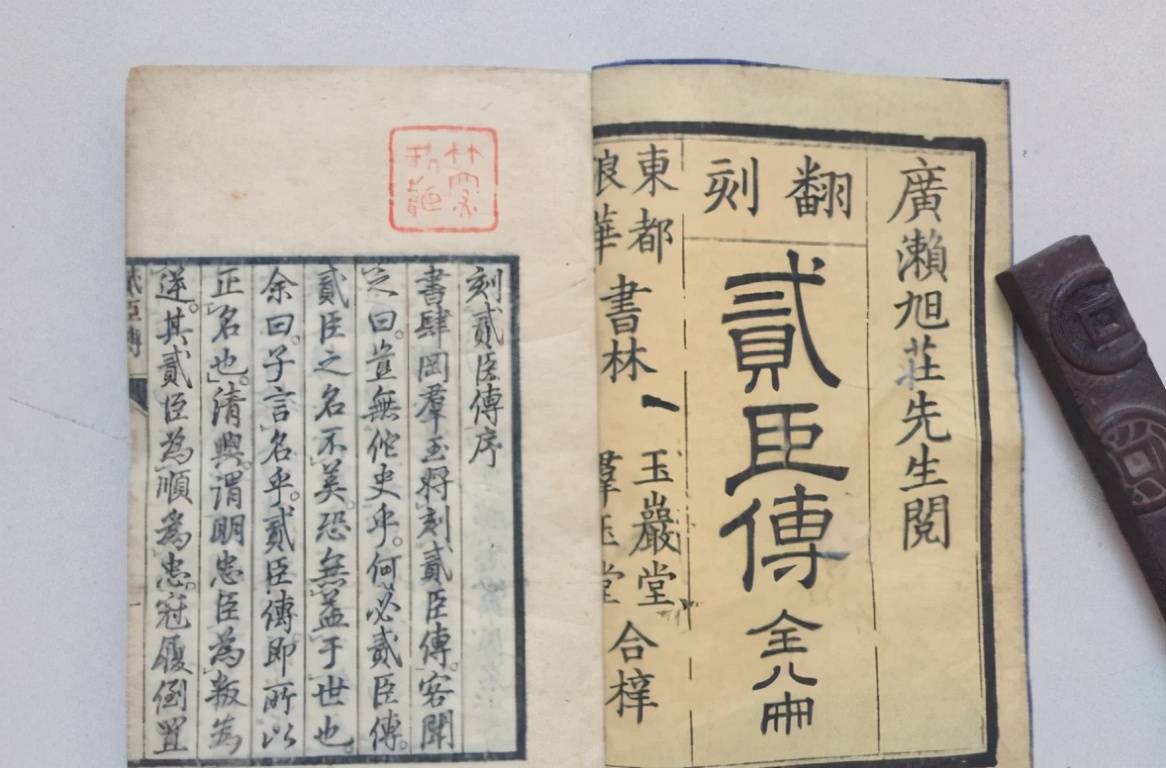 廣瀨旭荘先生閱
翻刻
貳臣傳 全八冊
東都 書林 玉巖堂 合梓
浪華 羣玉堂
刻貳臣傳序
書肆岡羣玉將刻貳臣傳。客聞
之曰。豈無佗史乎。何必貳臣傳。
貳臣之名不美。恐無益于世也。
余曰。子言名乎。貳臣傳即所以
正名也。清興。謂明忠臣為叛為
逆。其貳臣為順為忠。冠履倒置
貳臣傳